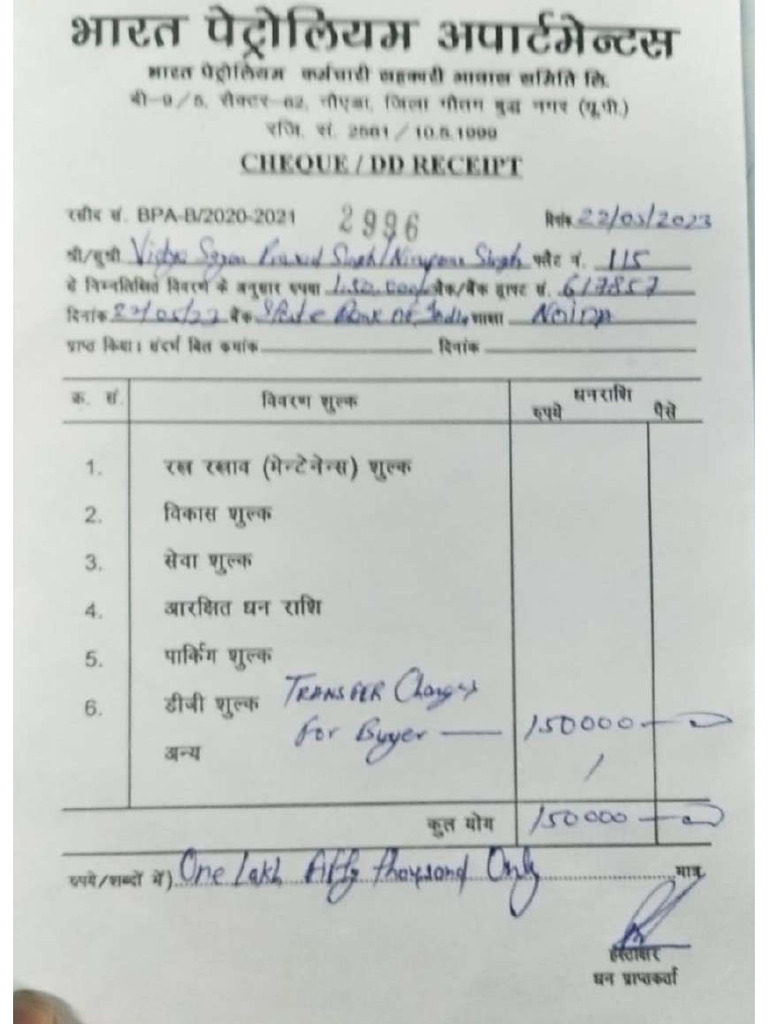 भारत पेट्रोलियम अपार्टमेन्टस
भारत पेट्रोलियम कर्मचारी सहकारी आवास समिति लि.
बी-9/5, सैक्टर-62, नौएडा, जिला गौतम बुद्ध नगर (यू.पी.)
रजि. सं. 2561/10.5.1999
CHEQUE / DD RECEIPT
रसीद सं. BPA-B/2020-2021 2996 दिनांक 22/03/2023
श्री/सुश्री Singh Singh फ्लैट नं. 115
से निम्नलिखित विवरण के अनुसार रुपया चैक/बैंक ड्राफ्ट सं. 617857
दिनांक बैंक State Bank of India शाखा Noida
प्राप्त किया। संदर्भ बिल क्रमांक दिनांक
क्र. सं. विवरण शुल्क धनराशि
रुपये पैसे
1. रख रखाव (मेन्टेनेन्स) शुल्क
2. विकास शुल्क
3. सेवा शुल्क
4. आरक्षित धन राशि
5. पार्किंग शुल्क
6. डीजी शुल्क TRANSFER Charges
अन्य For Buyer — 150000
कुल योग 150000
रुपये/शब्दों में) One Lakh Fifty Thousand Only मात्र
हस्ताक्षर
धन प्राप्तकर्ता